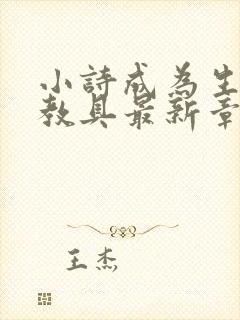 小詩成為生
教具最新章
王杰